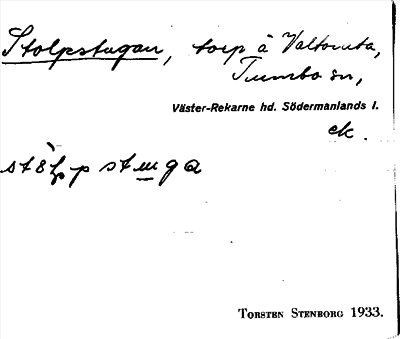 Stolpstugan, torp å Valtorüta,
Tumbo sn,
Väster-Rekarne hd. Södermanlands l.
ek.
Torsten Stenborg 1933.